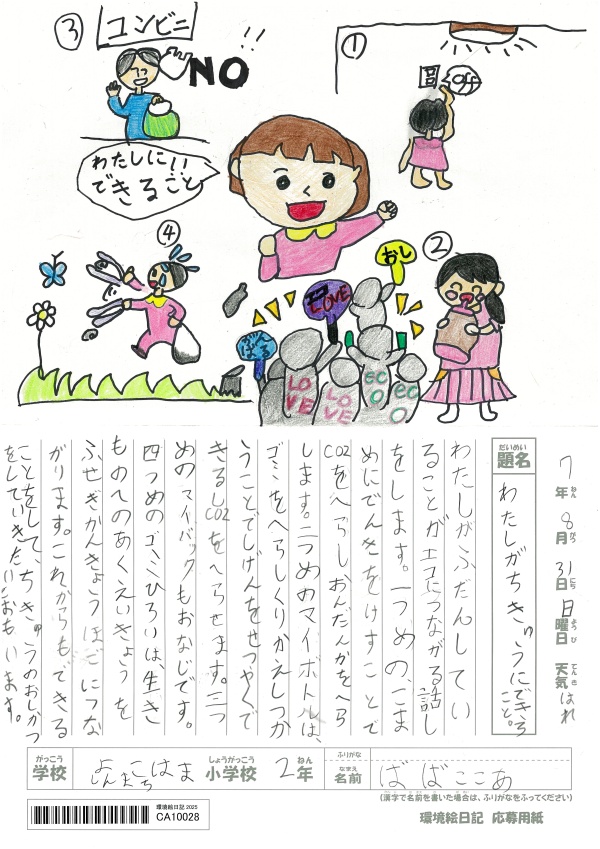 ③
コンビニ
NO!!
①
off
わたしに
できること
④
②
おし
LOVE
LOVE
LOVE
ECO
ECO
7年 8月 31日 日曜日 天気 はれ
ねん がつ にち ようび てんき
だいめい
題名
わたしがちきゅうにできること。
わたしがふだんしてい
ることがエコにつながる話し
をします。一つめの、こま
めにでんきをけすことで
CO2をへらしおんだんかをへら
します。二つめのマイボトルは、
ゴミをへらしくりかえしつか
うことでしげんをせつやくで
きるしCO2をへらせます。三つ
めのマイバックもおなじです。
四つめのゴミひろいは、生き
ものへのあくえいきょうを
ふせぎかんきょうほごにつな
がります。これからもできる
ことをして、ちきゅうのおしかつ
をしていきたいとおもいます。
がっこう
学校
しょうがっこう
小学校
2年
ねん
ふりがな
なまえ
名前
ばばここあ
(漢字で名前を書いた場合は、ふりがなをふってください)
環境絵日記 2025
CA10028
環境絵日記 応募用紙